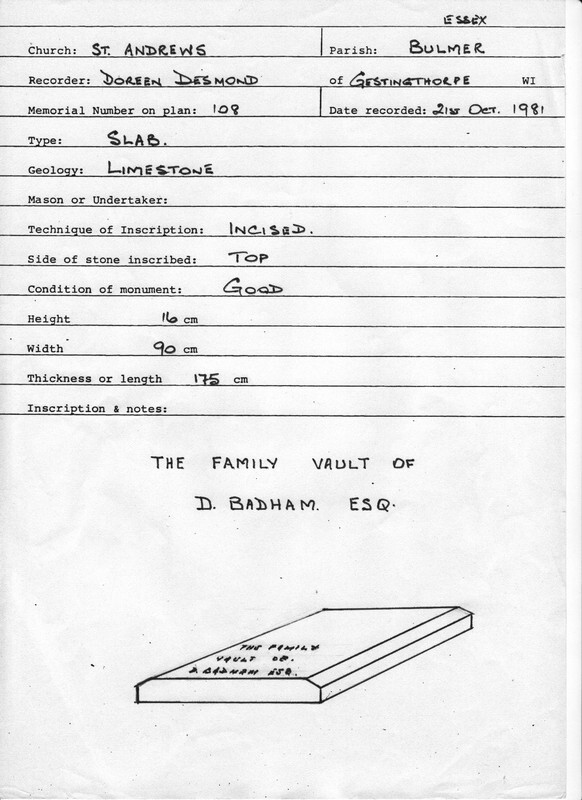 ESSEX
Church: ST. ANDREWS Parish: BULMER
Recorder: DOREEN DESMOND of GESTINGTHORPE WI
Memorial Number on plan: 108 Date recorded: 21st OCT. 1981
Type: SLAB.
Geology: LIMESTONE
Mason or Undertaker:
Technique of Inscription: INCISED.
Side of stone inscribed: TOP
Condition of monument: GOOD
Height 16 cm
Width 90 cm
Thickness or length 175 cm
Inscription & notes:
THE FAMILY VAULT OF
D. BADHAM. ESQ.
THE FAMILY
VAULT OF.
D BADHAM ESQ.